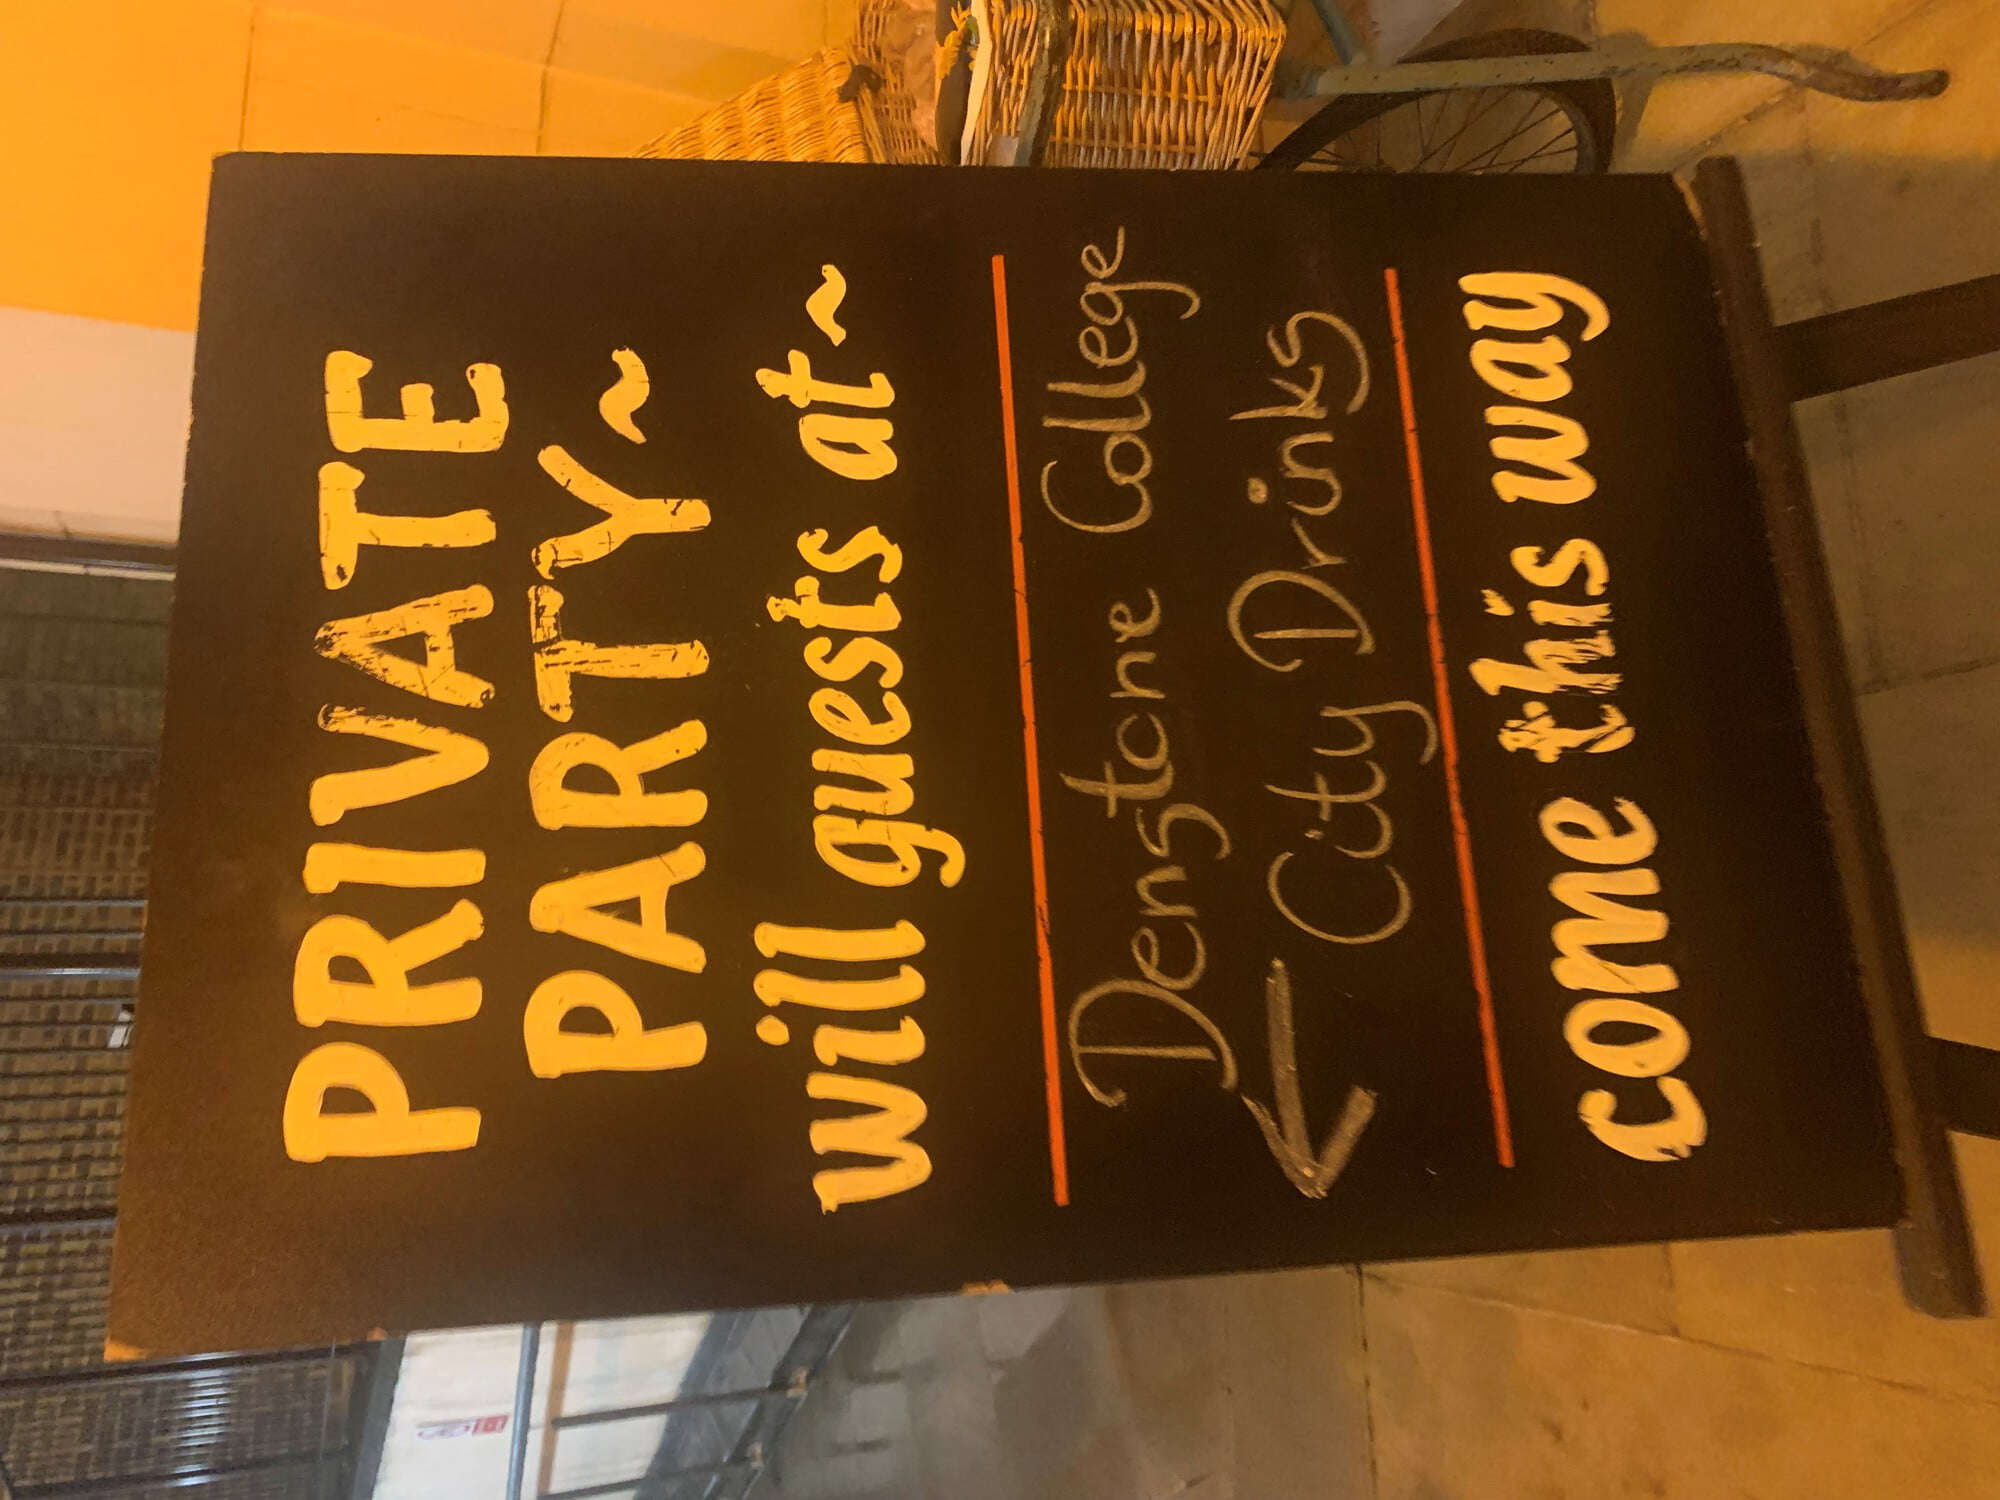 PRIVATE
PARTY~
will guests at~
Denstone College
← City Drinks
come this way